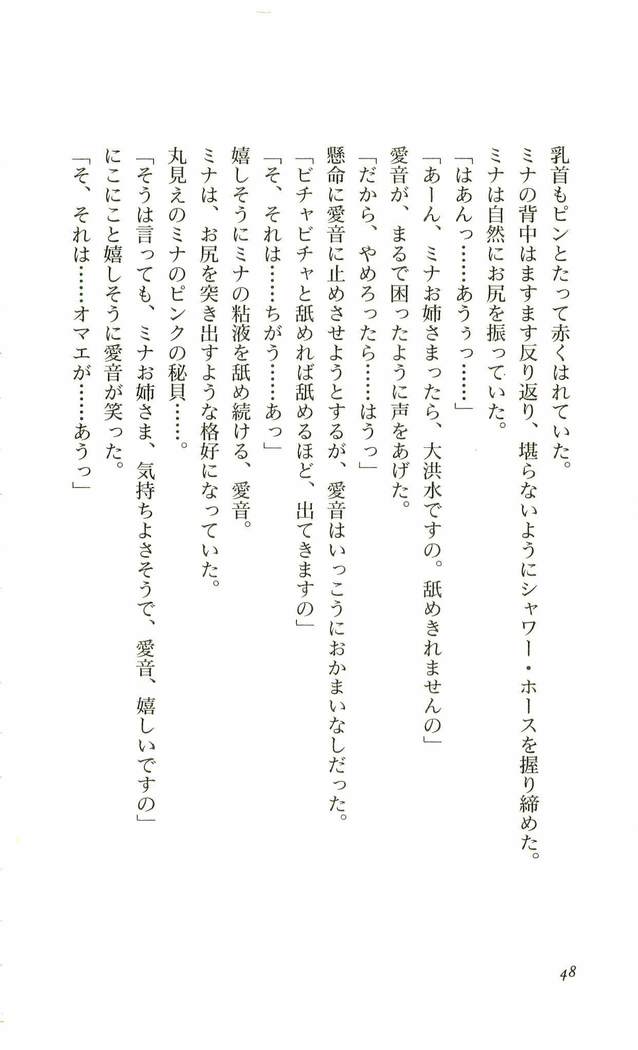 乳首もピンとたって赤くはれていた。
ミナの背中はますます反り返り、堪らないようにシャワー・ホースを握り締めた。
ミナは自然にお尻を振っていた。
「はあんっ……あうぅっ……」
「あーん、ミナお姉さまったら、大洪水ですの。舐めきれませんの」
愛音が、まるで困ったように声をあげた。
「だから、やめろったら……はうっ」
懸命に愛音に止めさせようとするが、愛音はいっこうにおかまいなしだった。
「ビチャビチャと舐めれば舐めるほど、出てきますの」
「そ、それは……ちがう……あっ」
嬉しそうにミナの粘液を舐め続ける、愛音。
ミナは、お尻を突き出すような格好になっていた。
丸見えのミナのピンクの秘貝……。
「そうは言っても、ミナお姉さま、気持ちよさそうで、愛音、嬉しいですの」
にこにこと嬉しそうに愛音が笑った。
「そ、それは……オマエが……あうっ」
48